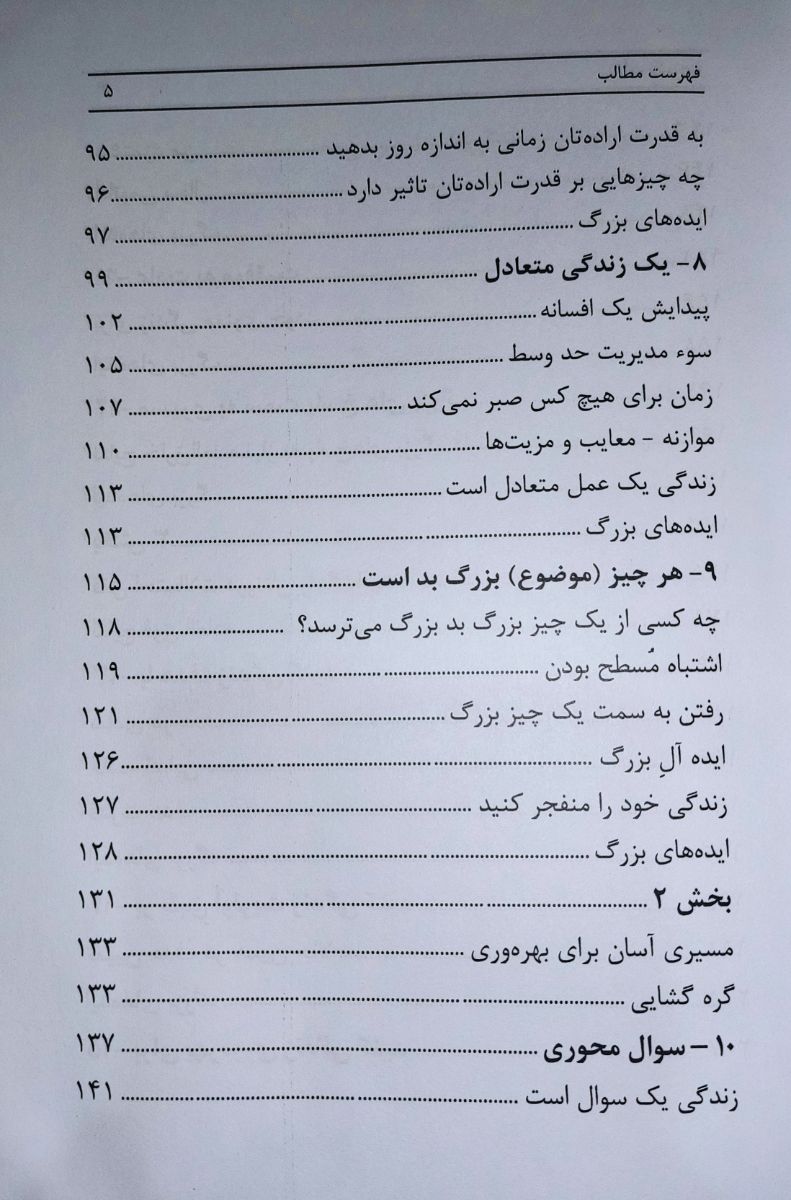 فهرست مطالب ۵
به قدرت اراده‌تان زمانی به اندازه روز بدهید ........ ۹۵
چه چیزهایی بر قدرت اراده‌تان تاثیر دارد ........ ۹۶
ایده‌های بزرگ ........ ۹۷
۸- یک زندگی متعادل ........ ۹۹
پیدایش یک افسانه ........ ۱۰۲
سوء مدیریت حد وسط ........ ۱۰۵
زمان برای هیچ کس صبر نمی‌کند ........ ۱۰۷
موازنه - معایب و مزیت‌ها ........ ۱۱۰
زندگی یک عمل متعادل است ........ ۱۱۳
ایده‌های بزرگ ........ ۱۱۳
۹- هر چیز (موضوع) بزرگ بد است ........ ۱۱۵
چه کسی از یک چیز بزرگ بد بزرگ می‌ترسد؟ ........ ۱۱۸
اشتباه مُسطح بودن ........ ۱۱۹
رفتن به سمت یک چیز بزرگ ........ ۱۲۱
ایده آلِ بزرگ ........ ۱۲۶
زندگی خود را منفجر کنید ........ ۱۲۷
ایده‌های بزرگ ........ ۱۲۸
بخش ۲ ........ ۱۳۱
مسیری آسان برای بهره‌وری ........ ۱۳۳
گره گشایی ........ ۱۳۳
۱۰ - سوال محوری ........ ۱۳۷
زندگی یک سوال است ........ ۱۴۱